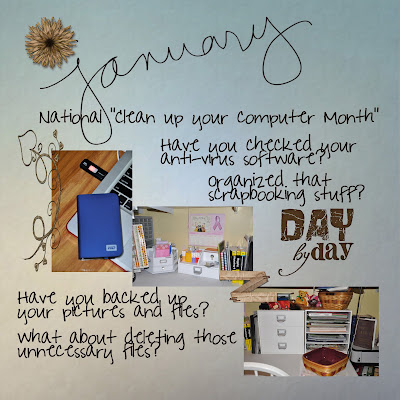 January
National "Clean up your Computer Month"
Have you checked your
anti-virus software?
organized that
scrapbooking stuff?
DAY
by day
Have you backed up
your pictures and files?
what about deleting those
unnecessary files?